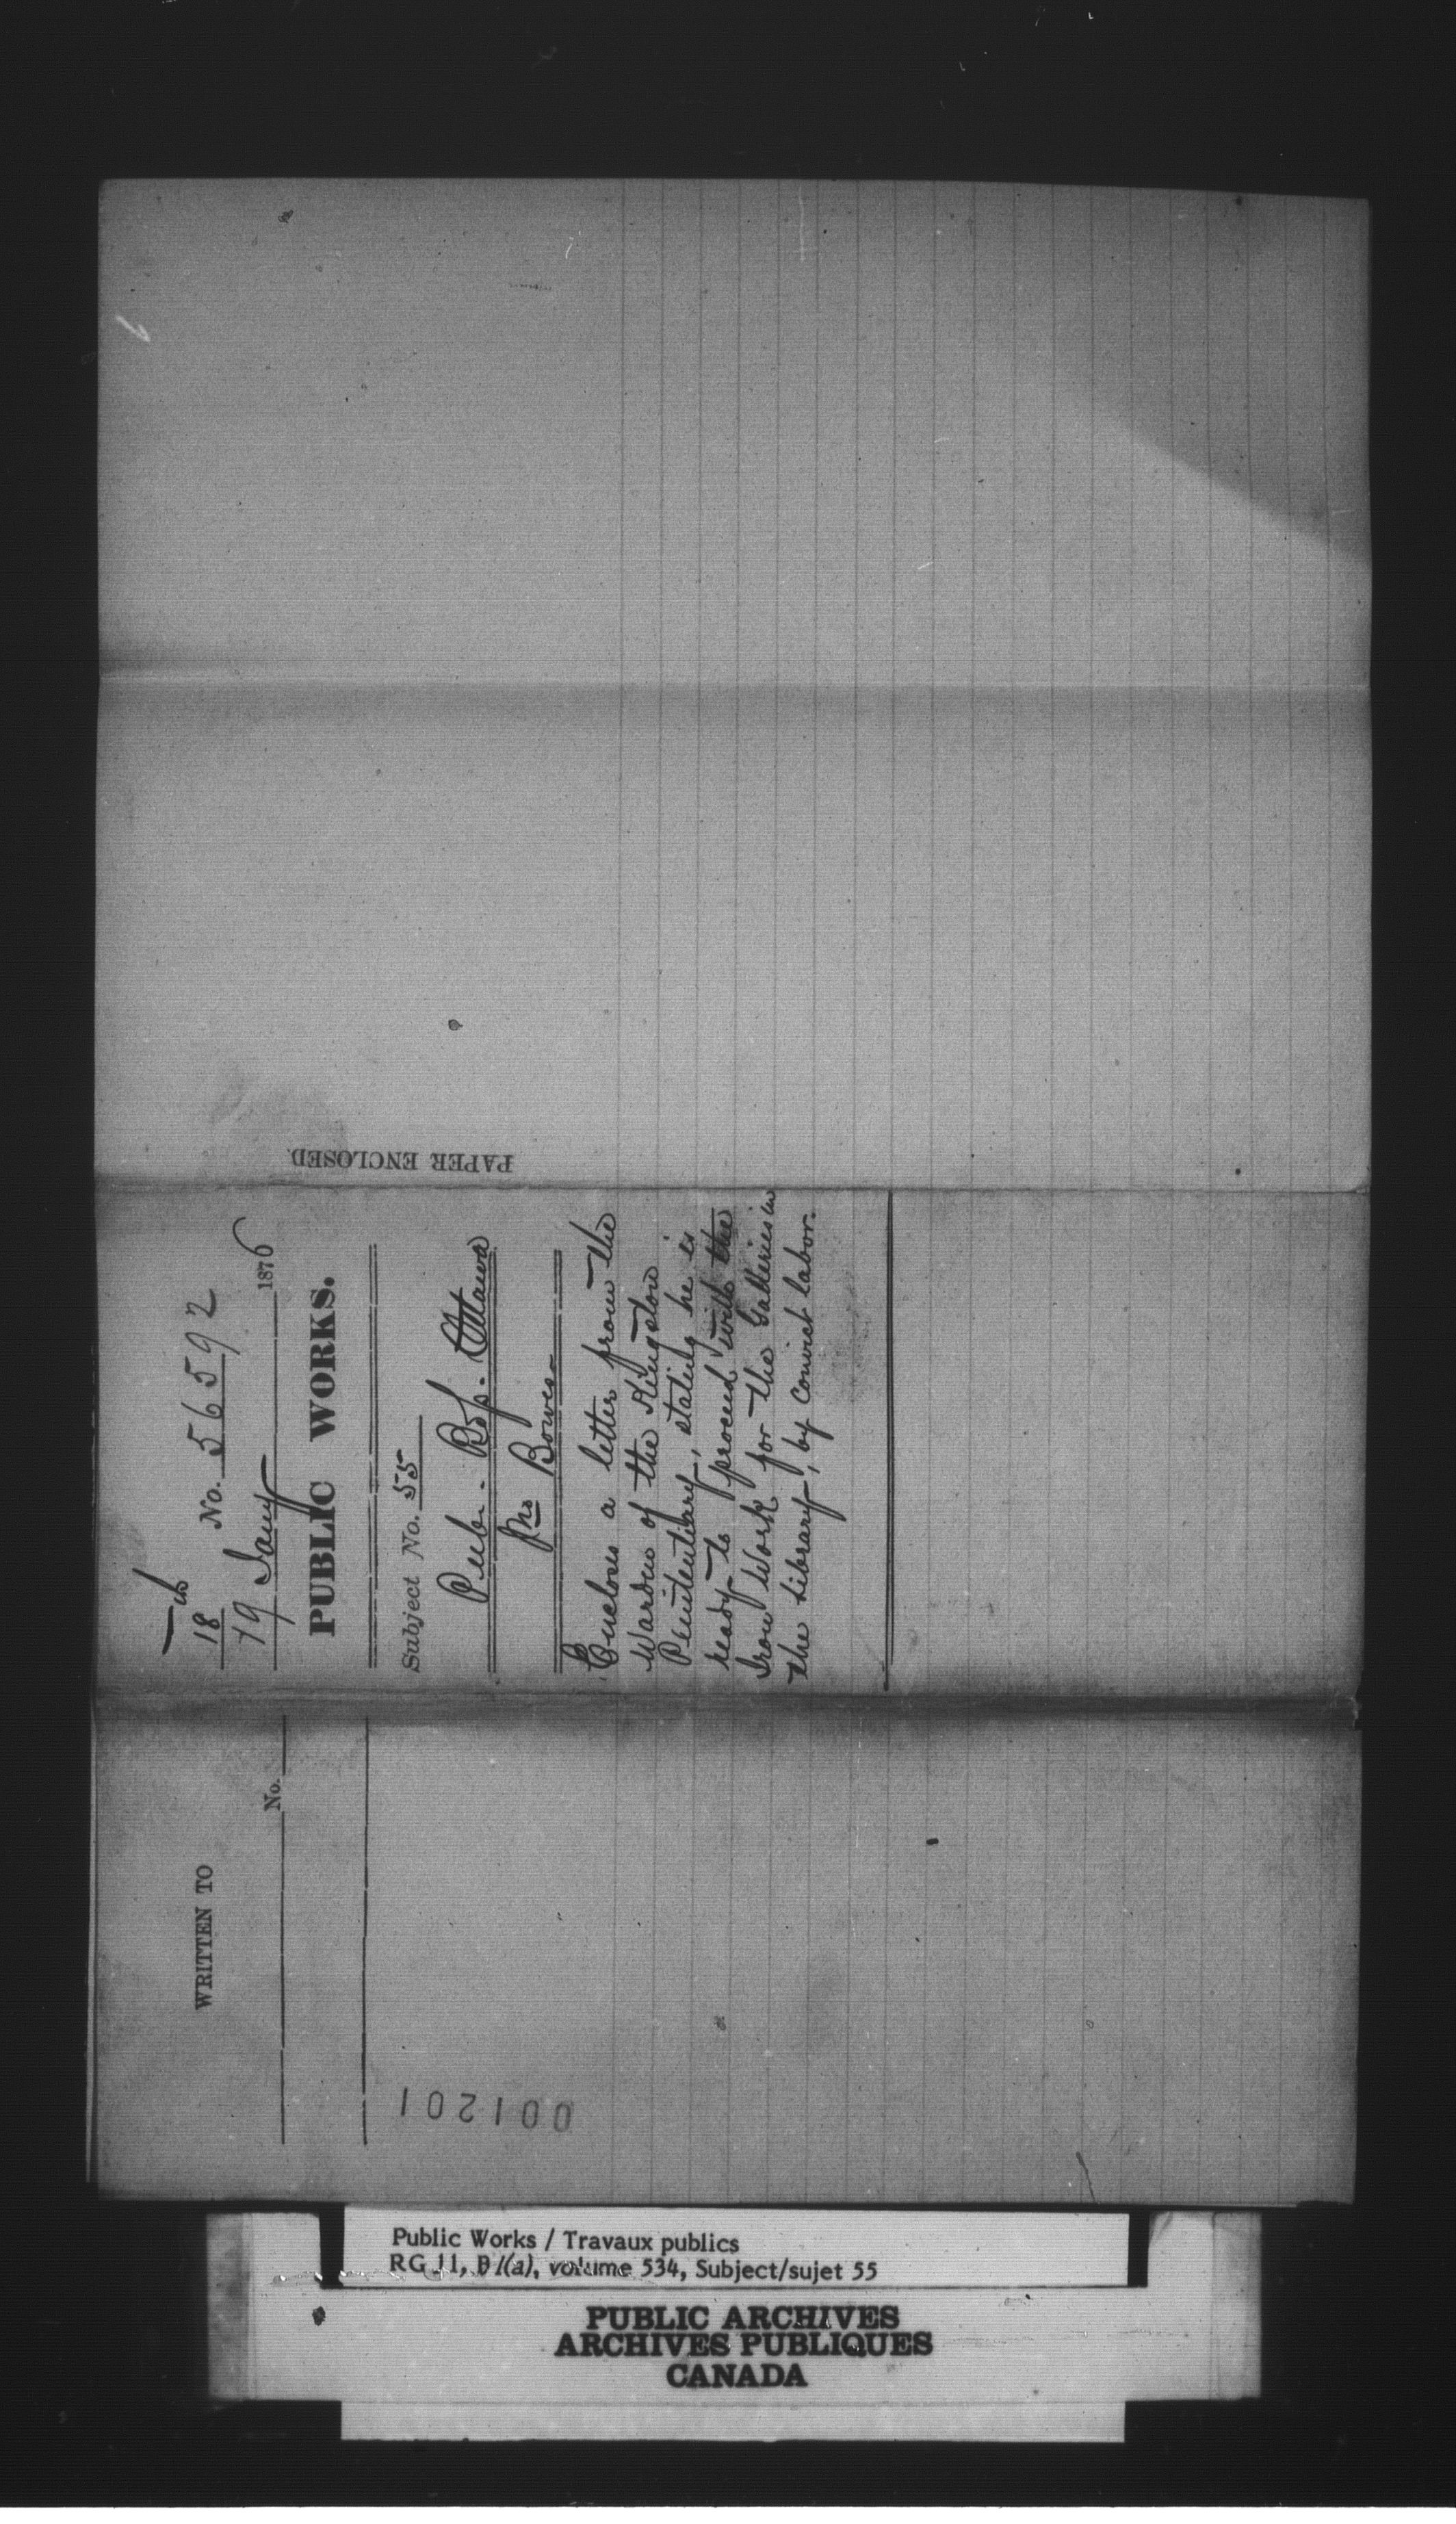 18
No. 56592
19 Jany 1876
PUBLIC WORKS.
Subject No. 55
Pub. Bdgs. Ottawa
Bowes
Encloses a letter from the
Warden of the Kingston
Penitentiary, stating he is
ready to proceed with the
Iron Work for the Galleries in
the Library, by convict labor.
PAPER ENCLOSED.
WRITTEN TO
No.
001201
Public Works / Travaux publics
RG 11, B 1(a), volume 534, Subject/sujet 55
PUBLIC ARCHIVES
ARCHIVES PUBLIQUES
CANADA